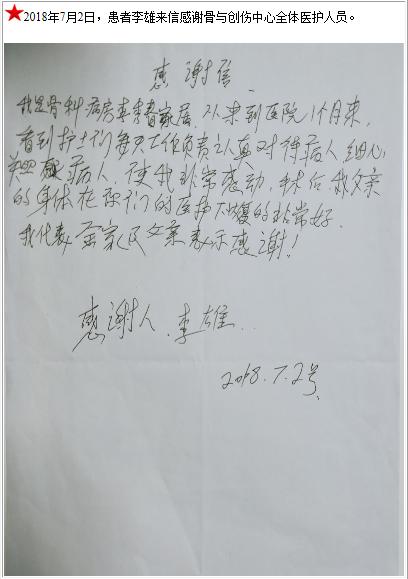 ★2018年7月2日，患者李雄来信感谢骨与创伤中心全体医护人员。
感谢信
我是骨科病房李春家属，从来到医院1个月来，
看到护士们每天工作负责认真对待病人细心
关照病人，使我非常感动，术后我父亲
的身体在你们的医护下恢复的非常好.
我代表全家及父亲表示感谢！
感谢人 李雄
2018.7.2号